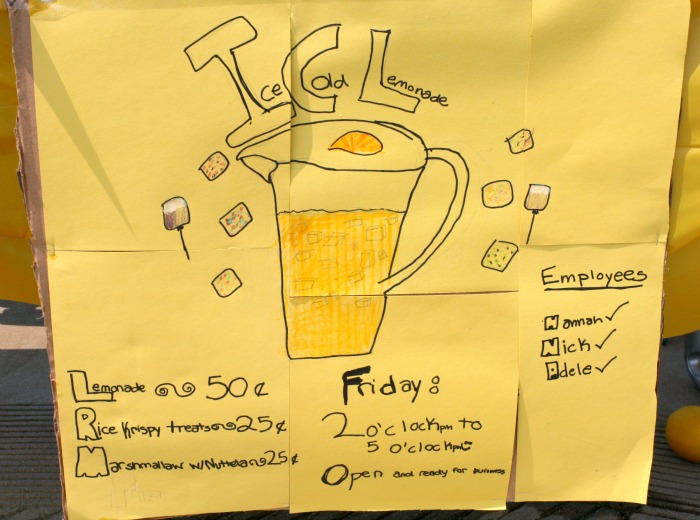 Ice Cold Lemonade
Lemonade 50¢
Rice Krispy treats 25¢
Marshmallow w/Nuttela 25¢
Friday:
2 o'clock pm to
5 o'clock pm
Open and ready for business
Employees
Hannah ✓
Nick ✓
Adele ✓